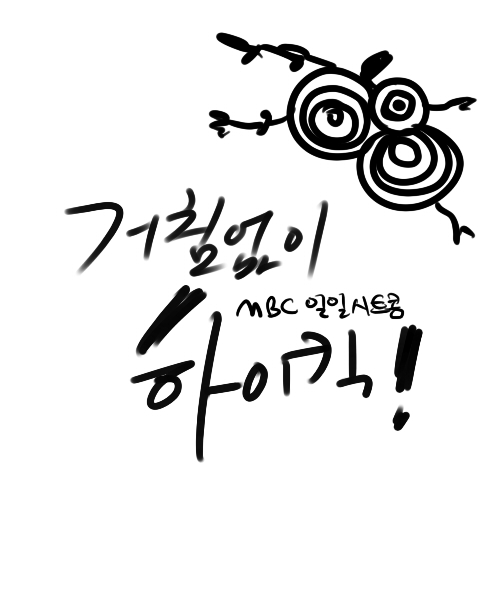 거침없이
MBC 일일시트콤
하이킥!